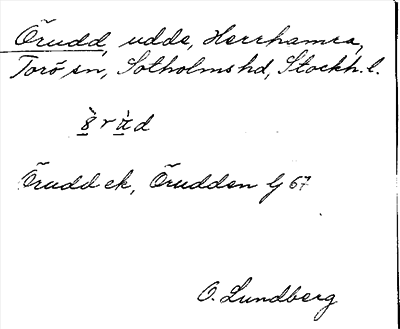 Örudd, udde, Herrhamra,
Torö sn, Sotholms hd, Stockh. l.
Örudd ek, Örudden Lj 67
O. Lundberg